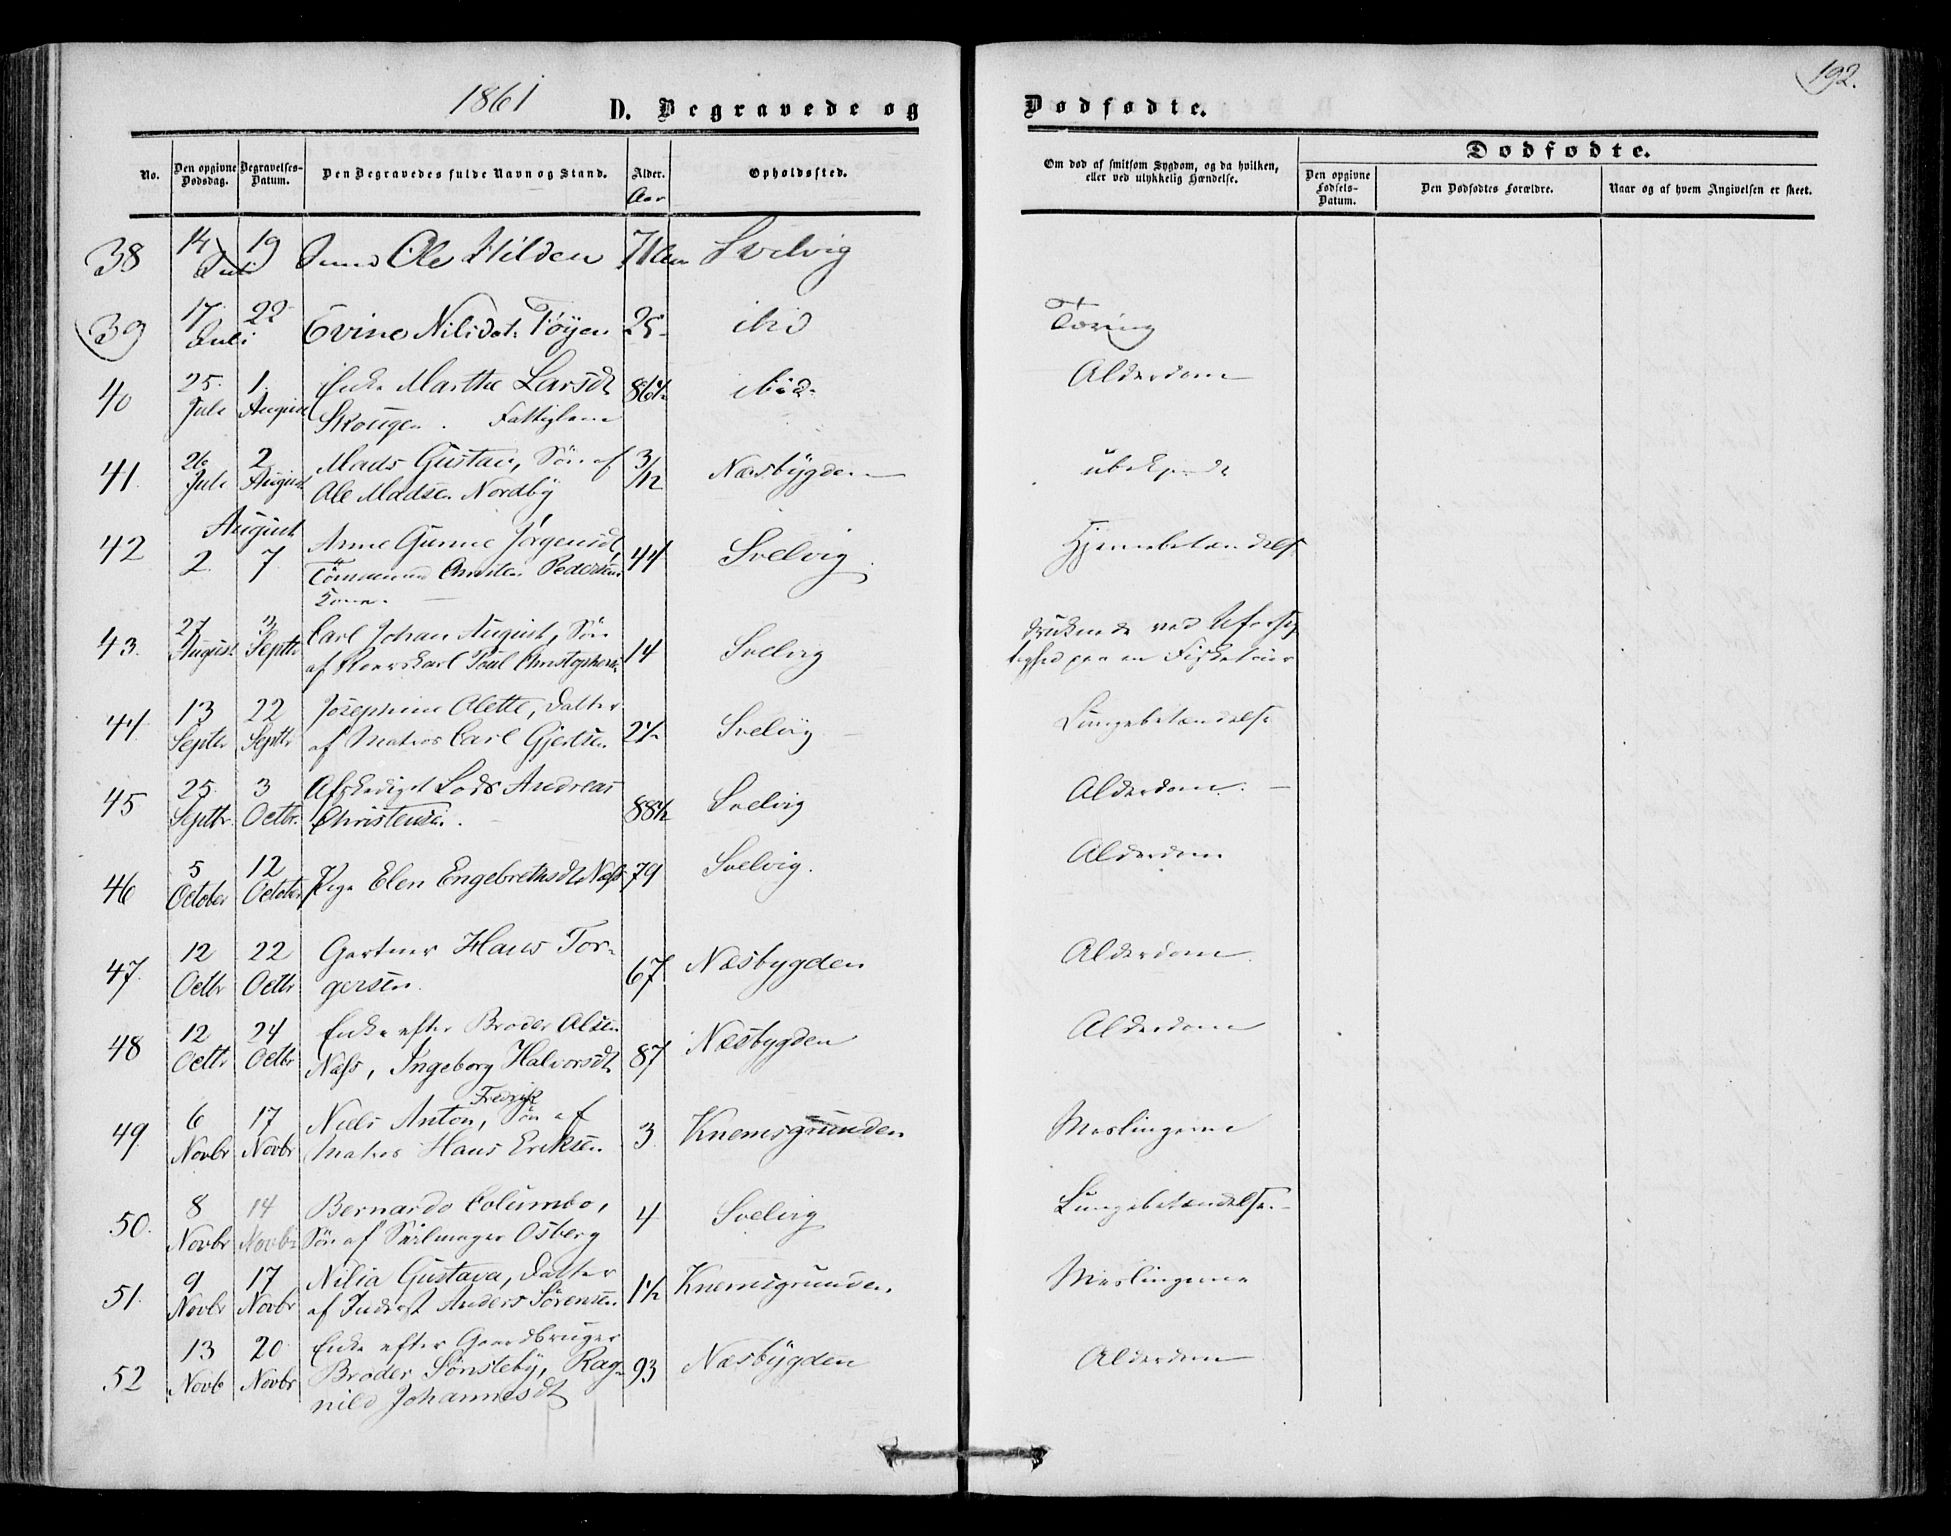 1861
D. Begravede og Dødfødte.
192.
No.
Den opgivne Dødsdag.
Begravelses-Datum.
Den Begravedes fulde Navn og Stand.
Alder.
Aar
Opholdssted.
Om død af smitsom Sygdom, og da hvilken,
eller ved ulykkelig Hændelse.
Dødfødte.
Den opgivne Fødsels-Datum.
Den Dødfødtes Forældre.
Naar og af hvem Angivelsen er skeet.
38 14 19 Ole Hilden 71 Aar Svelvig
Juli
39 17 22 Evine Nilsdat. Tøyen 25 ibid Tæring
Juli
40 25. 1. Enke Marthe Larsdt 86½ ibid. Alderdom
Juli August Skougen. Fattiglem
41. 26 2 Mads Gustav, Søn af 3/12 Næsbygden ubekjendt
Juli August Ole Madsen Nordby
August
42 2. 7. Anne Gunne Jørgensdt, 44 Svelvig. Hjernebetændelse
Tømmermand Christen Pedersens
Kone.
43. 27 3 Carl Johan August, Søn 14 Svelvig druknede ved Uforsig
August Septbr af Poul Christophersen tighed paa en Fisketour
44. 13 22 Josephine Olette, Datter 2½ Svelvig Lungebetændelse
Septbr Septbr af Matros Carl Gjertsen
45 25. 3 Afskediget Lods Andreas 88½ Svelvig Alderdom.
Septbr. Octbr. Christensen.
46 5 12 Pige Elen Engebrethsdt Næss 79 Svelvig. Alderdom
October October
47. 12 22 Gartner Hans Tor- 67. Næsbygden Alderdom.
Octbr Octbr gersen.
48 12 24 Enke efter Broder Olsen 87 Næsbygden Alderdom
Octbr Octbr Næss, Ingeborg Halvorsdt
Fredrik
49. 6 17 Niels Anton, Søn af 3. Knemsgrunden Meslingerne
Novbr Novbr Matros Hans Eriksen.
50. 8 14 Bernardo Columbo, 4 Svelvig Lungebetændelse.
Novbr Novbr Søn af Seilmager Osberg
51. 9 17 Nilia Gustava, Datter 1½ Knemsgrunden Meslingerne
Novbr Novbr af Inderst Anders Sørensen
52 13 20 Enke efter Gaardbruger 93 Næsbygden Alderdom
Novb Novbr Broder Sønsteby, Rag-
nild Johannesdt